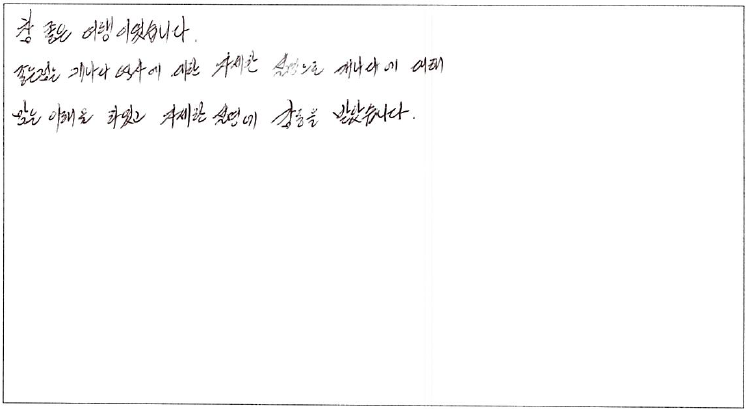 참 좋은 여행이었습니다.
좋은점은 캐나다 역사에 대한 자세한 설명으로 캐나다에 대해
많은 이해를 하였고 자세한 설명에 감동을 받았습니다.